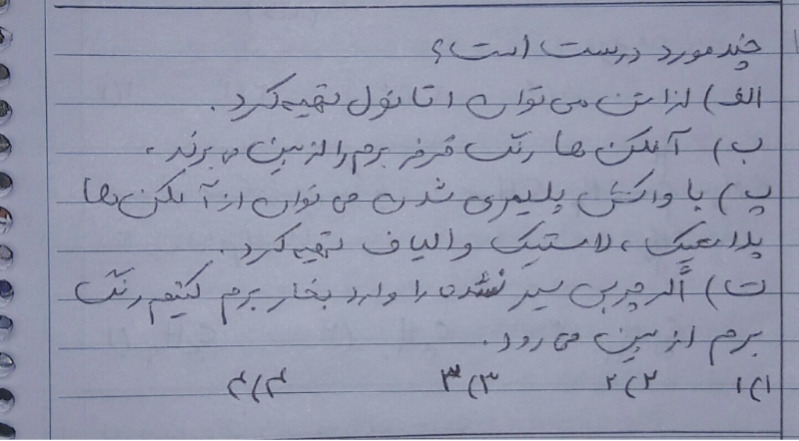 چند مورد درست است؟
الف) از اتن می توان اتانول تهیه کرد.
ب) آلکن ها رنگ قرمز برم را از بین می برند.
پ) با واکنش پلیمری شدن می توان از آلکن ها
پلاستیک، لاستیک و الیاف تهیه کرد.
ت) اگر چربی سیر نشده را وارد بخار برم کنیم رنگ
برم از بین می رود.
۱) ۱ ۲) ۲ ۳) ۳ ۴) ۴